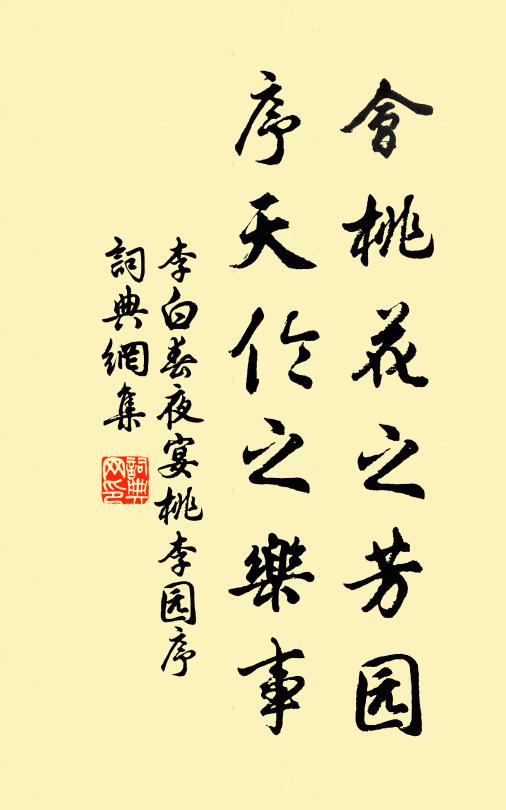 會桃花之芳园
序天伦之樂事
李白春夜宴桃李园序
詞典網集
詞典网印